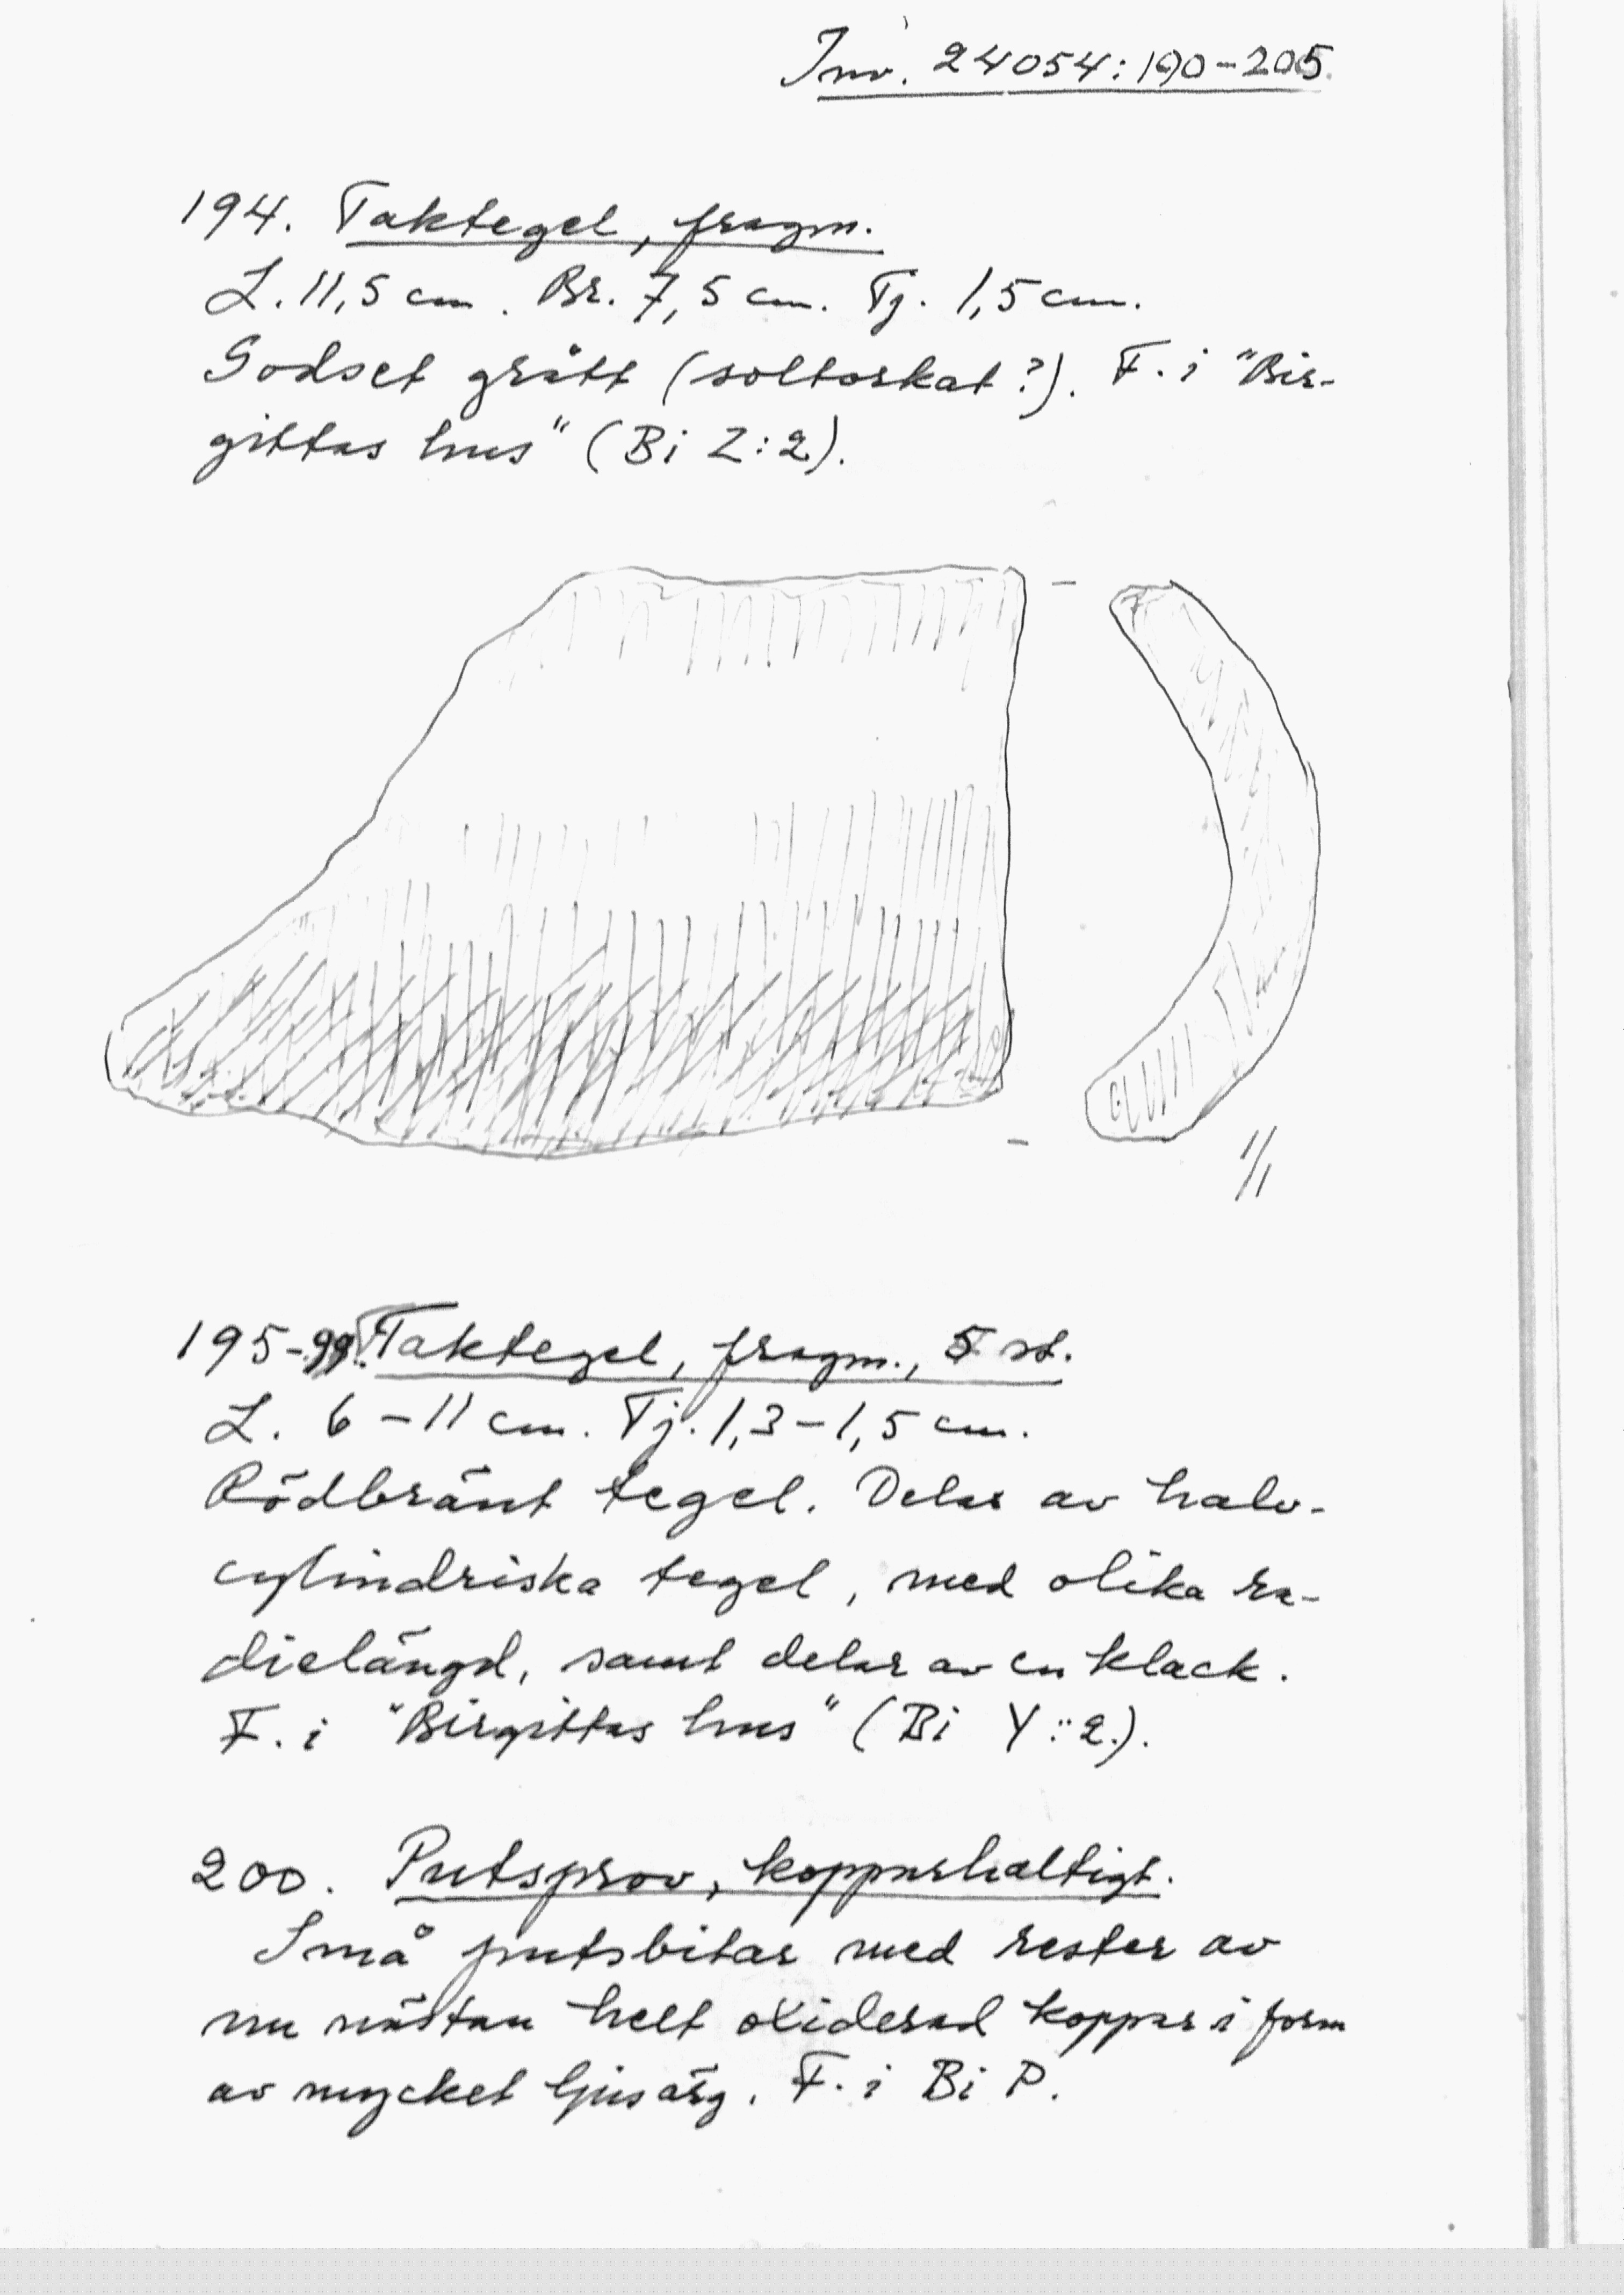 Inv. 24054:190-205.
194. Taktegel, fragm.
L. 11,5 cm. Br. 7,5 cm. Tj. 1,5 cm.
Godset grått (soltorkat?). F. i "Bir-
gittas hus" (Bi Z:2).
1/1
195-99. Taktegel, fragm., 5 st.
L. 6-11 cm. Tj. 1,3-1,5 cm.
Rödbränt tegel. Delar av halv-
cylindriska tegel, med olika ra-
dielängd, samt delar av en klack.
F. i "Birgittas hus" (Bi Y:2.).
200. Putsprov, kopparhaltigt.
Små putsbitar med rester av
nu nästan helt oxiderad koppar i form
av mycket ljus ärg. F. i Bi P.